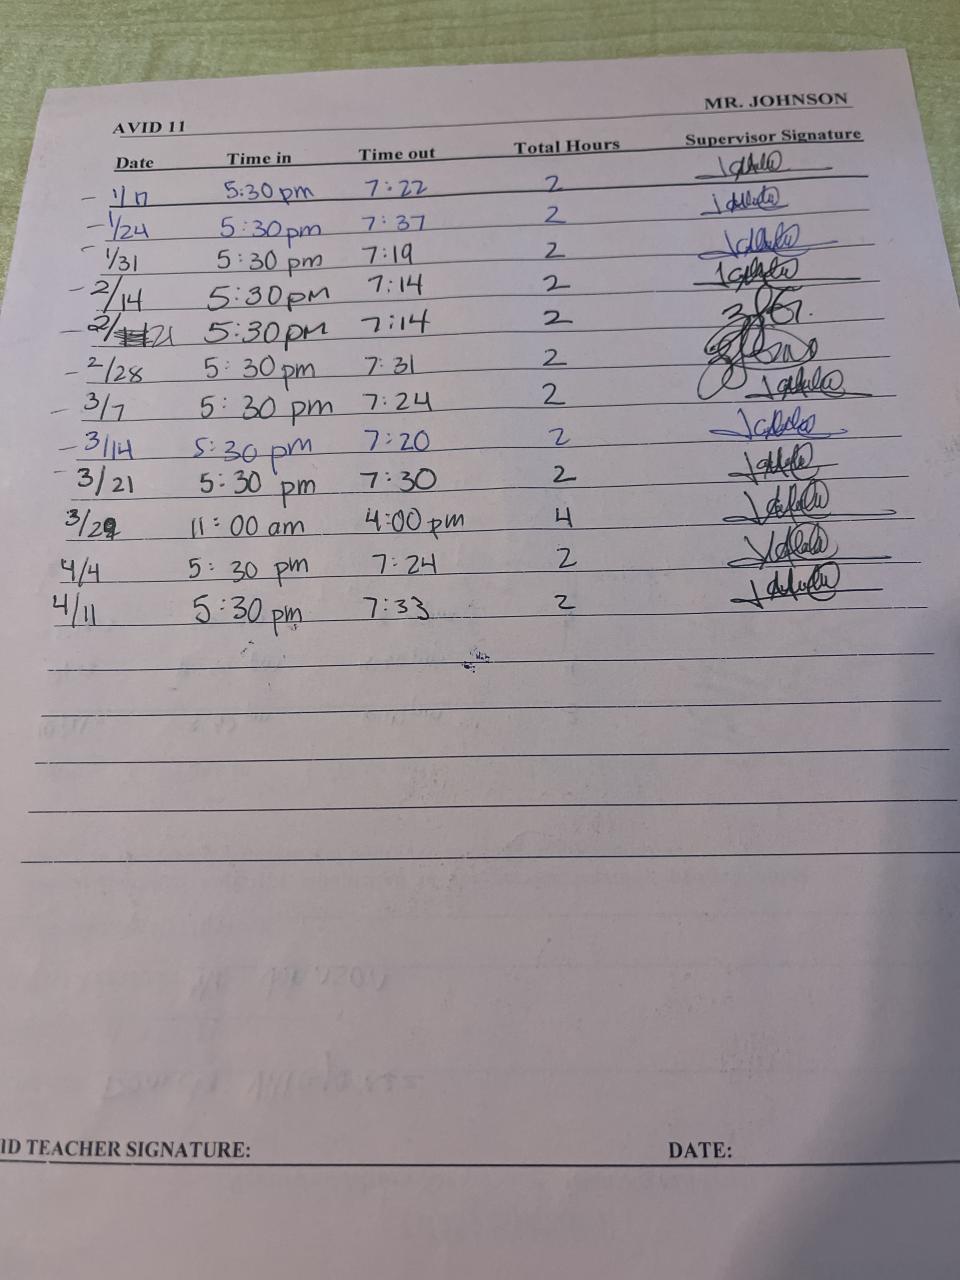 AVID 11 MR. JOHNSON
Date Time in Time out Total Hours Supervisor Signature
- 1/17 5:30 pm 7:22 2
- 1/24 5:30 pm 7:37 2
- 1/31 5:30 pm 7:19 2
- 2/14 5:30 pm 7:14 2
- 2/21 5:30 pm 7:14 2
- 2/28 5:30 pm 7:31 2
- 3/7 5:30 pm 7:24 2
- 3/14 5:30 pm 7:20 2
- 3/21 5:30 pm 7:30 2
3/29 11:00 am 4:00 pm 4
4/4 5:30 pm 7:24 2
4/11 5:30 pm 7:33 2
ID TEACHER SIGNATURE: DATE: